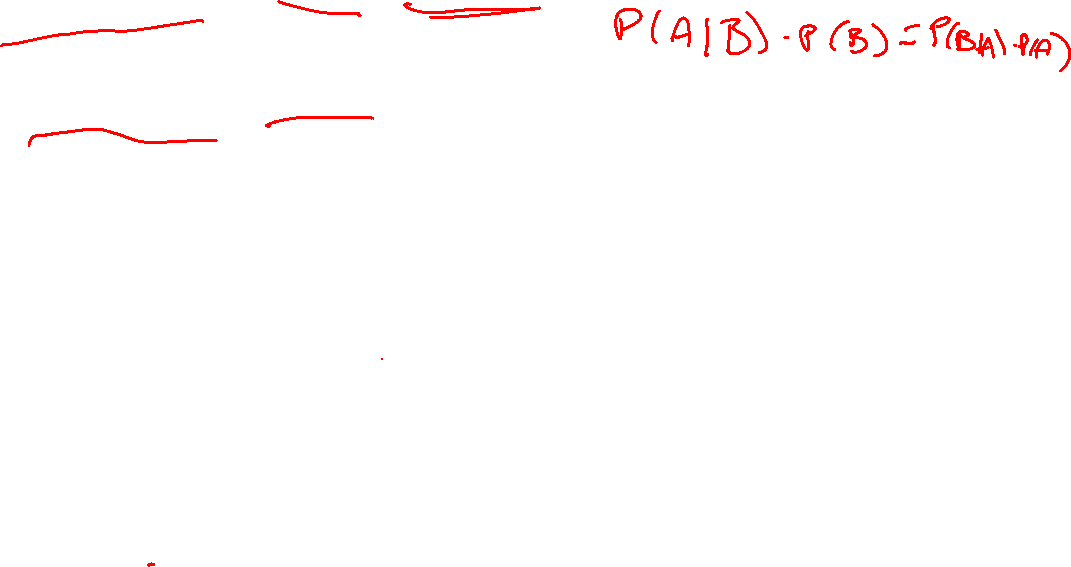 P(A|B) · P(B) = P(B|A) · P(A)